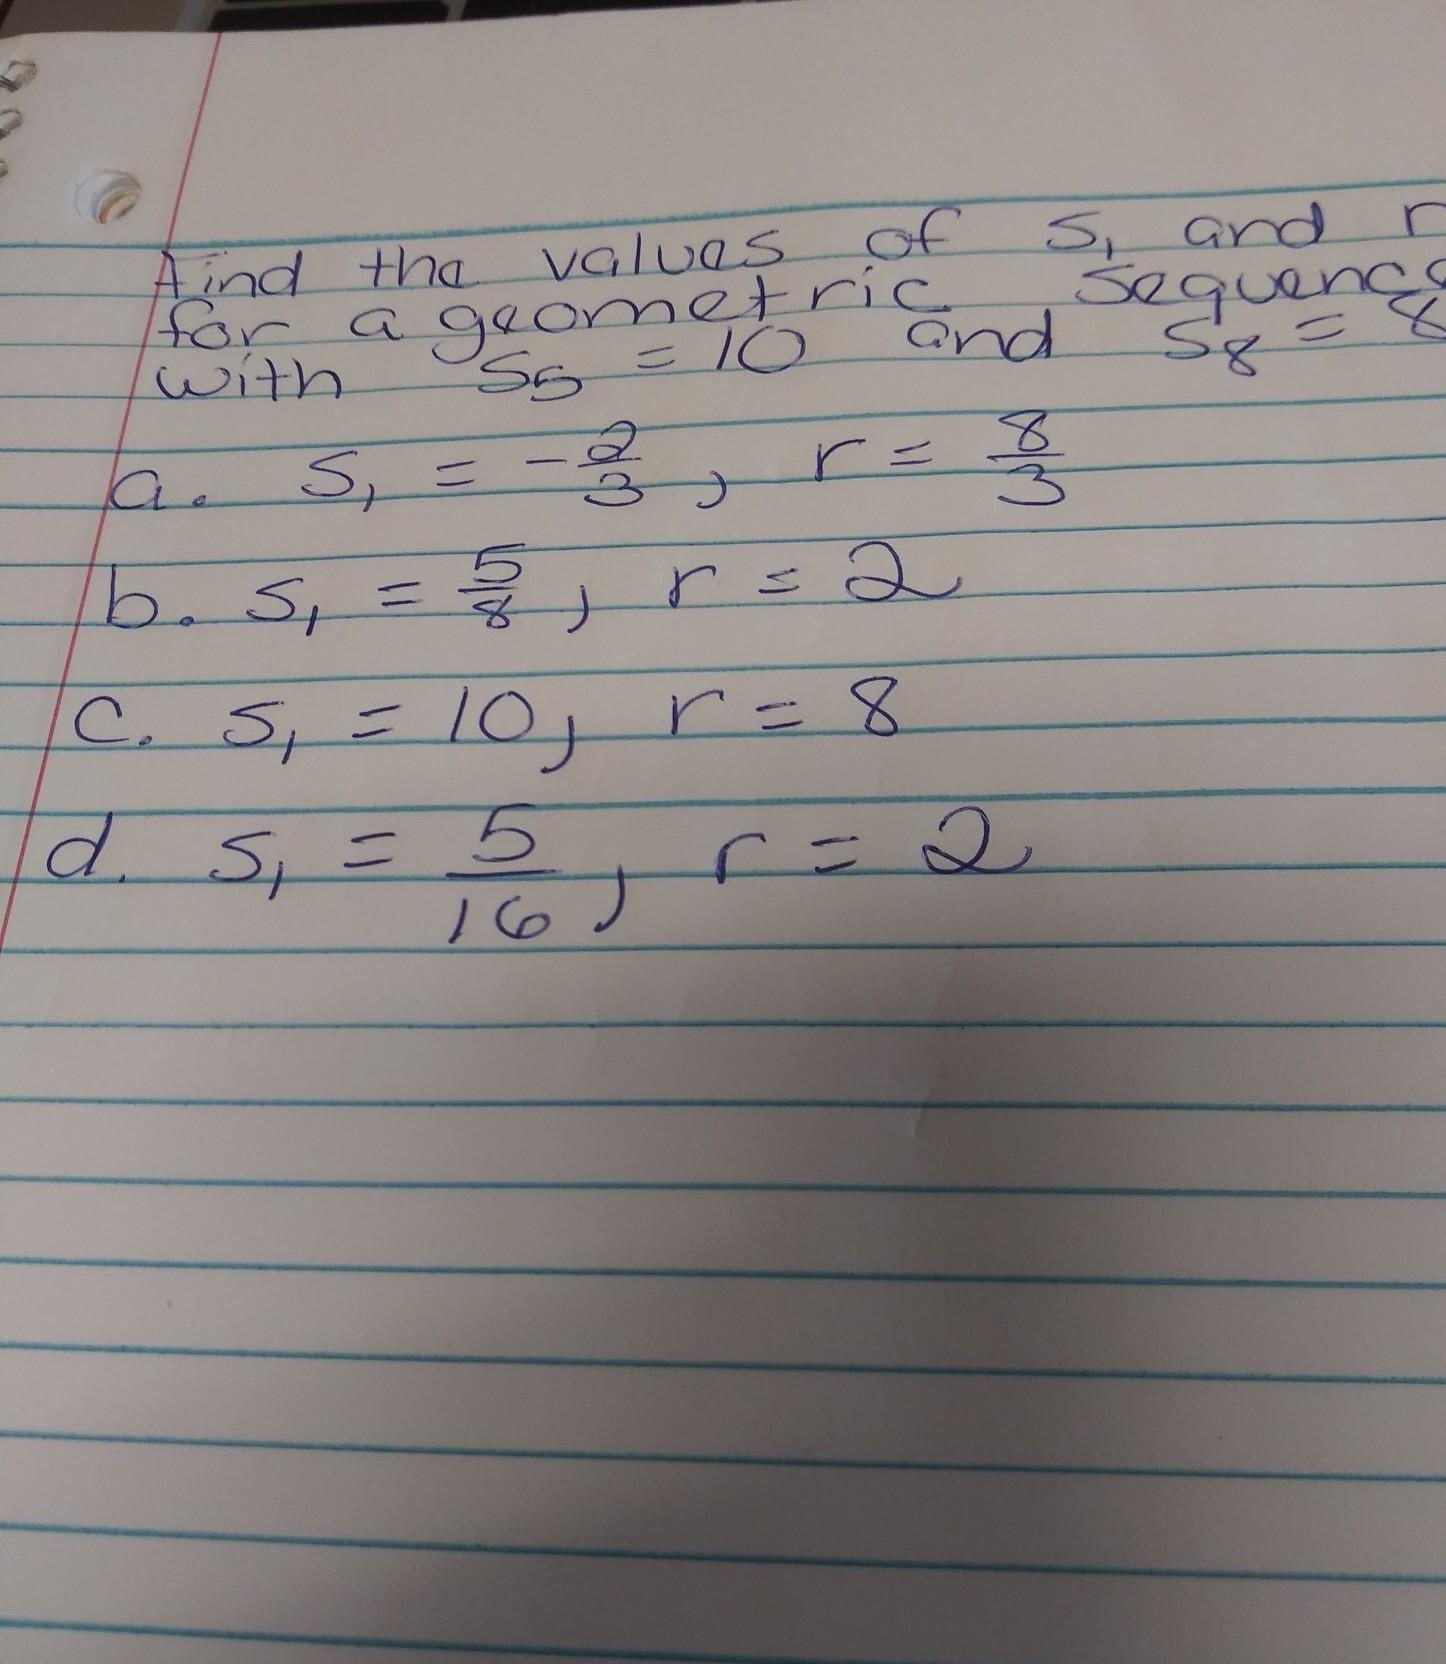 find the values of S₁ and r
for a geometric sequence
with S₅ = 10 and S₈ = 8
a. S₁ = -2/3, r = 8/3
b. S₁ = 5/8, r = 2
c. S₁ = 10, r = 8
d. S₁ = 5/16, r = 2